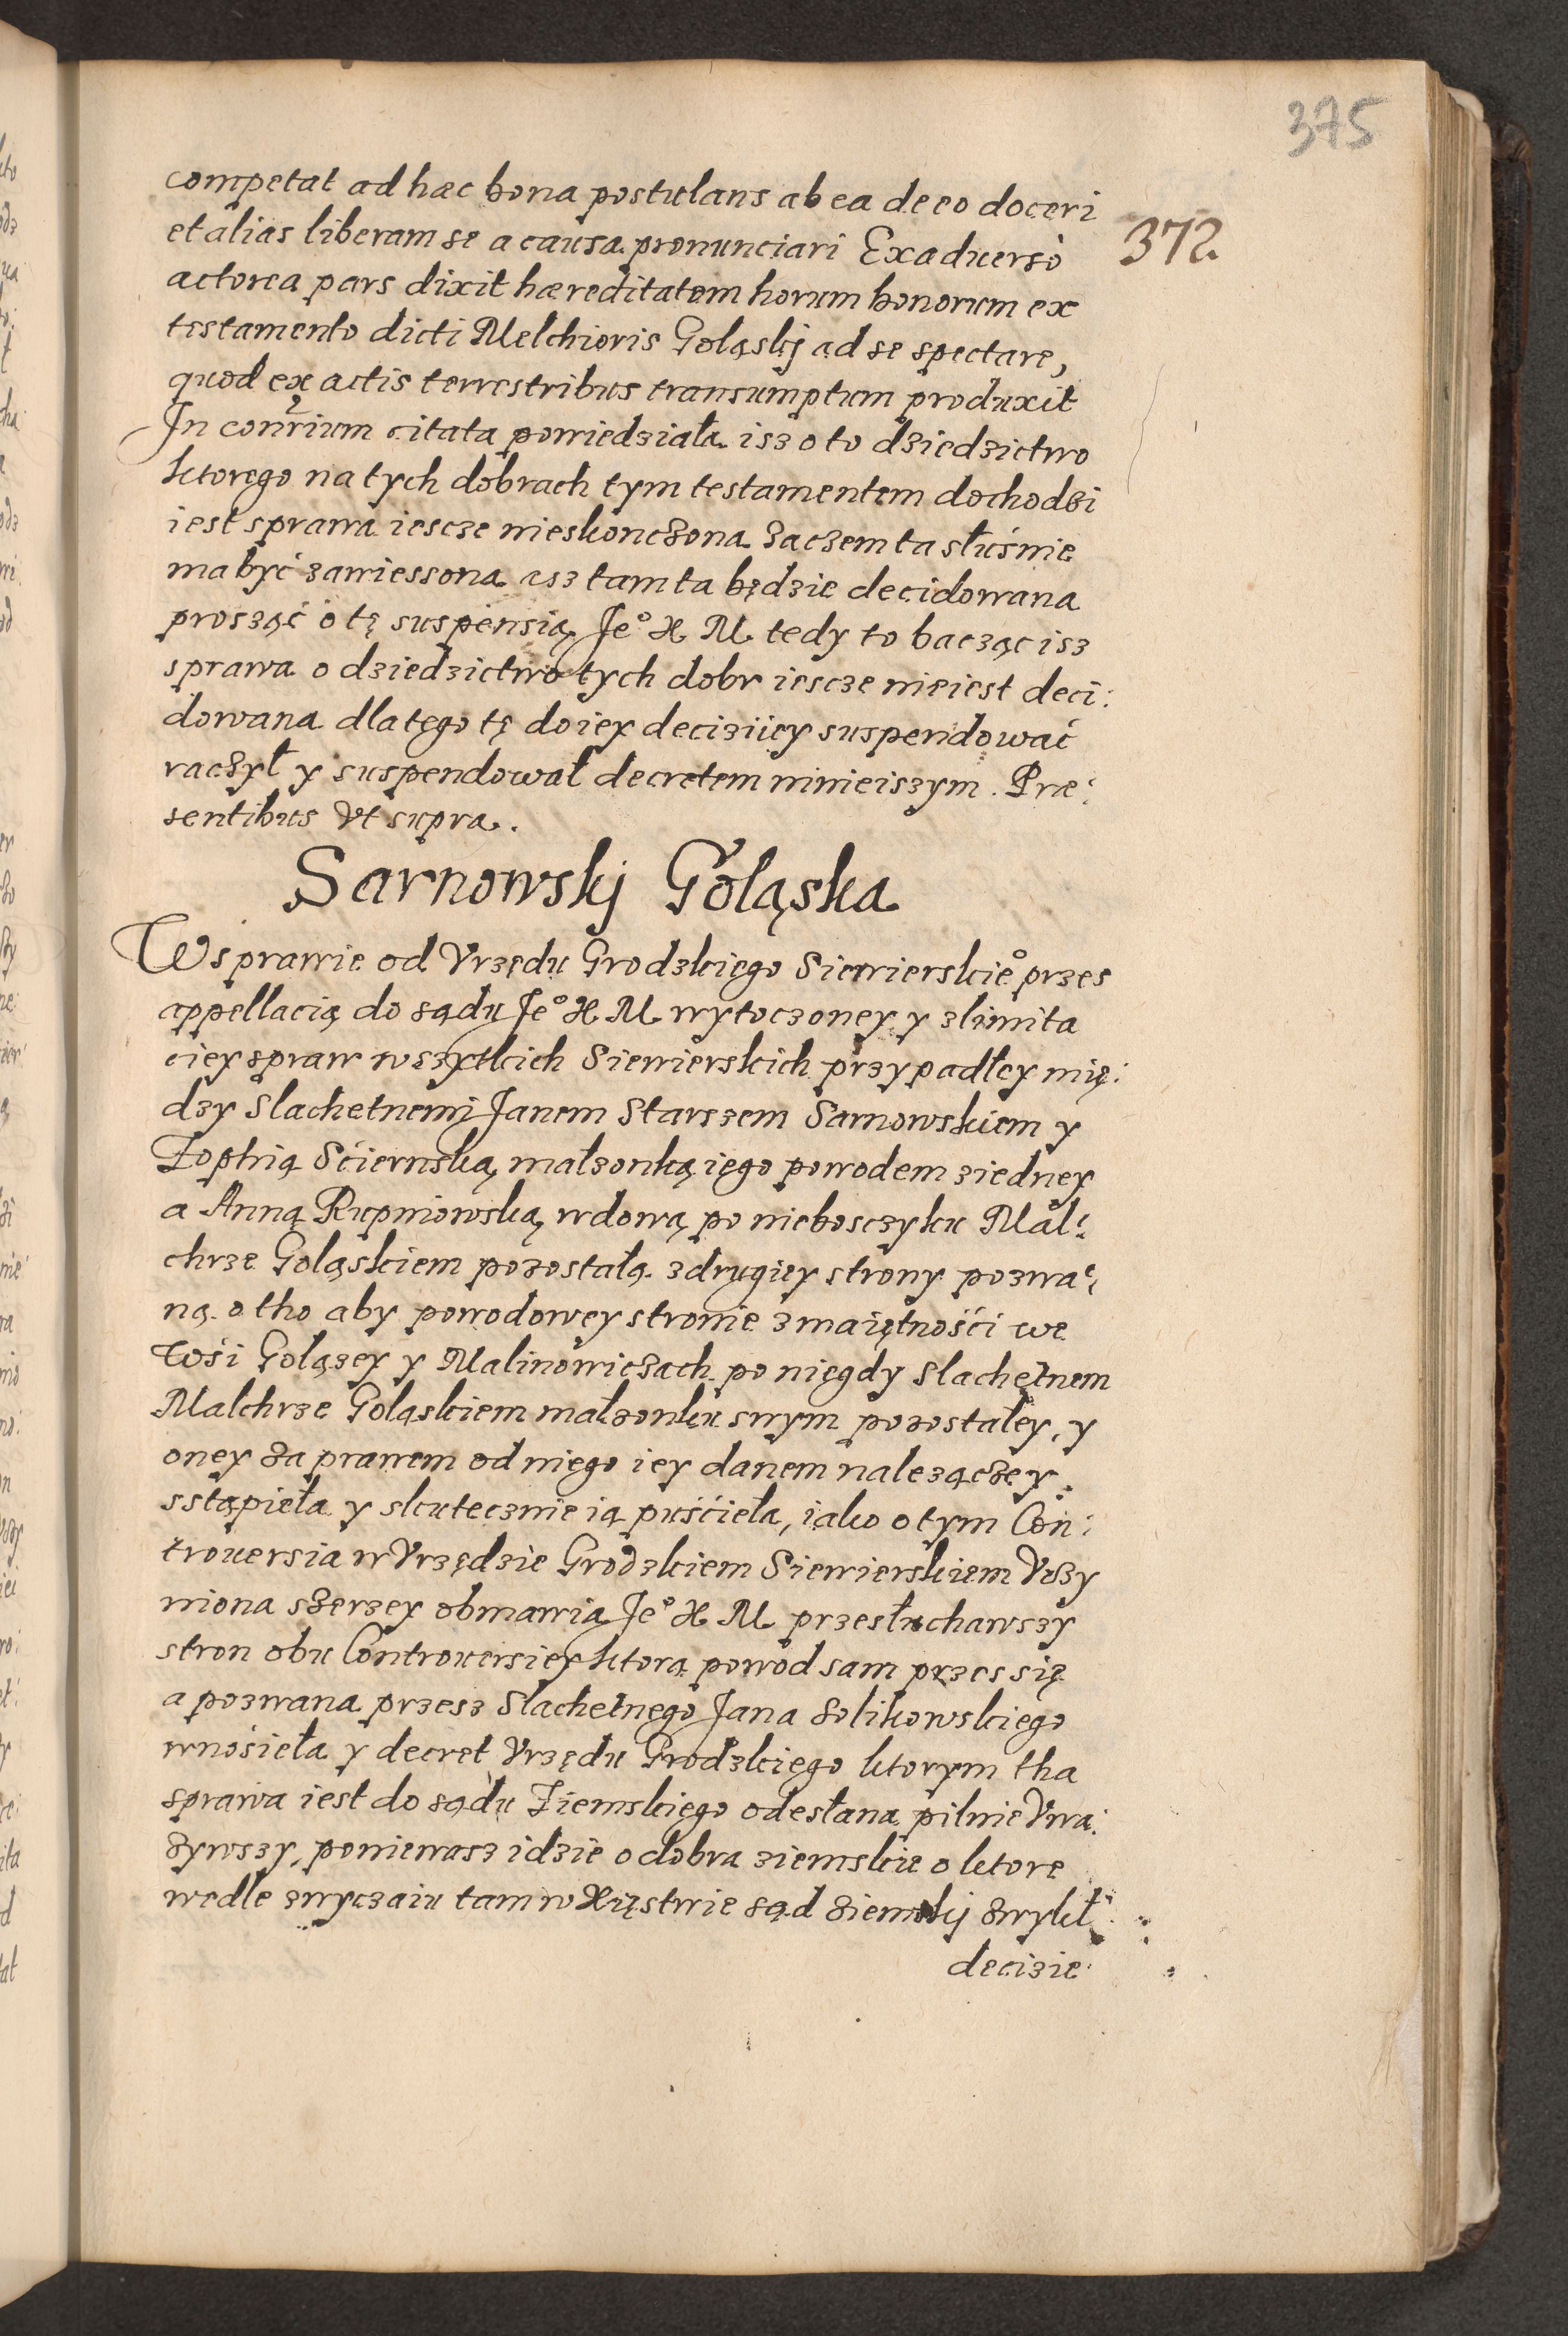 375
competat ad hæc bona postulans ab ea de eo doceri
et alias liberam se a causa pronunciari Ex aduerso
372
actorea pars dixit hæreditatem horum bonorum ex
testamento dicti Melchioris Goląskj ad se spectare,
quod ex actis terrestribus transumptum produxit
In conr̃ium citata powiedziała isz o to dziedzictwo
ktorego na tych dobrach tym testamentem dochodzi
iest sprawa iescze nieskonczona zaczem ta słuśnie
ma być zawiessona asz tam ta będzie decidowana
prosząć o tę suspensią Je° X M tedy to bacząc isz
sprawa o dziedzictwo tych dobr iescze nieiest deci:
dowana dla tęgo tę do iey deciziiey suspendowáć
raczył y suspendował decretem ninieiszym. Præ:
sentibus vt supra.
Sarnowskj Goląska
W sprawie od Vrzędu Grodzkięgo Siewierskie° przes
appellacią do sądu Je° X M wytoczoney y zlimita
ciey spraw wszytkich Siewierskich przypadłey mię:
dzy Slachetnemi Janem Starszem Sarnowskiem y
Zophią Sciernską małzonką ięgo powodem ziedney
a Anną Rupniowską wdową po nieboszczyku Mal:
chrze Goląskiem pozostałą zdrugiey strony pozwa:
ną o tho aby powodowey stronie z maiętności we
Wśi Goląszey y Malinowiczach po nięgdy slachetnem
Malchrze Goląskiem małzonku swym pozostałey, y
oney za prawem od nięgo iey danem nalezączey
sstąpieła y skutecznie ią puścieła, iako o tym Con:
trouersia w Vrzędzie Grodzkiem Siewierskiem Vczy
niona szerzey obmawia Je° X M przesłuchawszy
stron obu Controuersiey ktorą powod sam przes się
a pozwana przesz Slachetnego Jana Solikowskiego
wnosieła y decret Vrzędu Grodzkięgo ktorym tha
sprawa iest do sądu Ziemskięgo odesłana pilnie Vwa:
zywszy, poniewasz idzie o dobra ziemskie o ktore
wedle zwyczaiu tam w Xięstwie sąd ziemskj zwykł
decizie